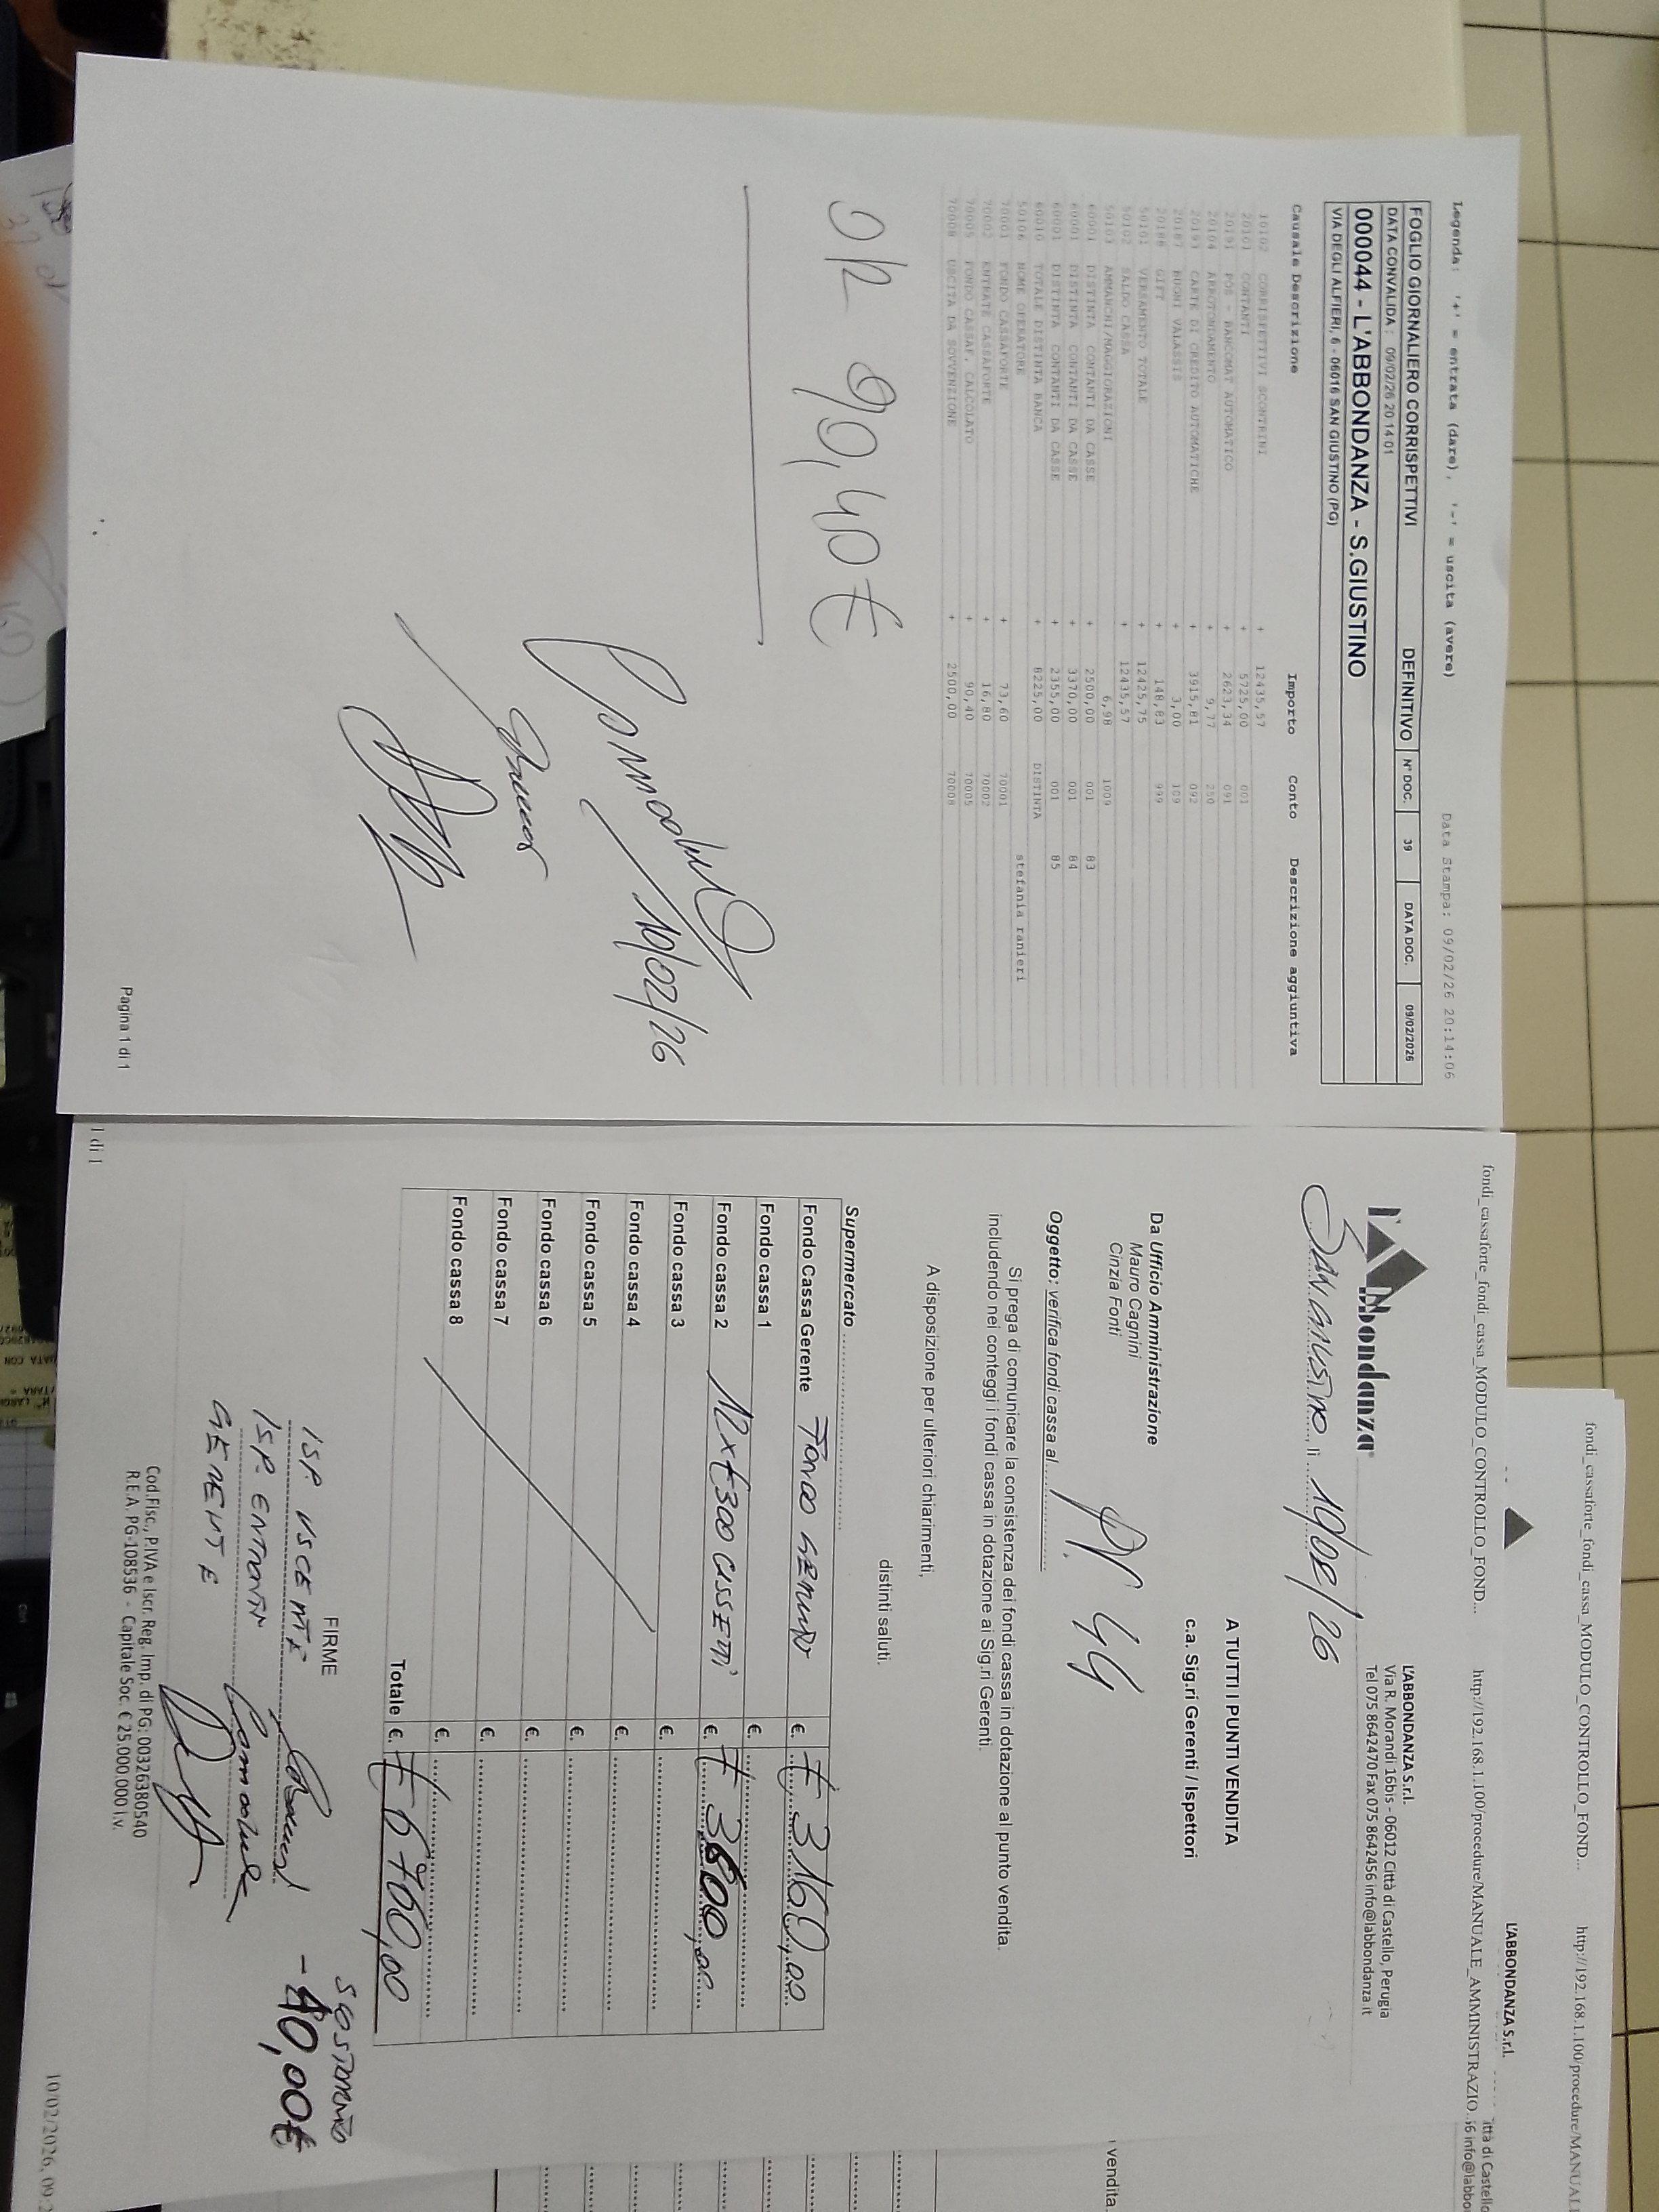 Legenda: '+' = entrata (dare), '-' = uscita (avere)
Data Stampa: 09/02/26 20:14:06
FOGLIO GIORNALIERO CORRISPETTIVI DEFINITIVO N° DOC. 39 DATA DOC. 09/02/2026
DATA CONVALIDA : 09/02/26 20.14.01
000044 - L'ABBONDANZA - S.GIUSTINO
VIA DEGLI ALFIERI, 6 - 06016 SAN GIUSTINO (PG)
Causale Descrizione Importo Conto Descrizione aggiuntiva
10102 CORRISPETTIVI SCONTRINI + 12435,57
20101 CONTANTI + 5725,00 001
20191 POS - BANCOMAT AUTOMATICO + 2623,34 091
20104 ARROTONDAMENTO + 9,77 250
20193 CARTE DI CREDITO AUTOMATICHE + 3915,81 092
20187 BUONI VALASSIS + 3,00 109
20188 GIFT + 148,83 999
50101 VERSAMENTO TOTALE + 12425,75
50102 SALDO CASSA + 12435,57
50103 AMMANCHI/MAGGIORAZIONI 6,98 1009
60001 DISTINTA CONTANTI DA CASSE + 2500,00 001 83
60001 DISTINTA CONTANTI DA CASSE + 3370,00 001 84
60001 DISTINTA CONTANTI DA CASSE + 2355,00 001 85
60010 TOTALE DISTINTA BANCA + 8225,00 DISTINTA
50106 NOME OPERATORE stefania ranieri
70001 FONDO CASSAFORTE + 73,60 70001
70002 ENTRATE CASSAFORTE + 16,80 70002
70005 FONDO CASSAF. CALCOLATO + 90,40 70005
70008 USCITA DA SOVVENZIONE + 2500,00 70008
OK 90,40€
10/02/26
Pagina 1 di 1
fondi_cassaforte_fondi_cassa_MODULO_CONTROLLO_FOND...
http://192.168.1.100/procedure/MANUALE_AMMINISTRAZIO...
l'Abbondanza
L'ABBONDANZA S.r.l.
Via R. Morandi 16bis - 06012 Città di Castello, Perugia
Tel 075 8642470 Fax 075 8642456 info@labbondanza.it
SAN GIUSTINO, li 10/02/26
A TUTTI I PUNTI VENDITA
c.a. Sig.ri Gerenti / Ispettori
Da Ufficio Amministrazione
Mauro Cagnini
Cinzia Fonti
PV 44
Oggetto: verifica fondi cassa al
Si prega di comunicare la consistenza dei fondi cassa in dotazione al punto vendita
includendo nei conteggi i fondi cassa in dotazione ai Sig.ri Gerenti.
A disposizione per ulteriori chiarimenti,
distinti saluti.
Supermercato
Fondo Cassa Gerente FONDO GERENTE €. € 3160,00
Fondo cassa 1 €.
Fondo cassa 2 12x€300 CASSETTI €. € 3600,00
Fondo cassa 3 €.
Fondo cassa 4 €.
Fondo cassa 5 €.
Fondo cassa 6 €.
Fondo cassa 7 €.
Fondo cassa 8 €.
Totale €. € 6760,00
FIRME
ISP. USCENTE
ISP. ENTRANTE
GERENTE
SCOSTAMENTO
- 40,00€
Cod.Fisc., P.IVA e Iscr. Reg. Imp. di PG: 00326380540
R.E.A. PG-108536 - Capitale Soc. € 25.000.000 i.v.
1 di 1
fondi_cassaforte_fondi_cassa_MODULO_CONTROLLO_FOND...
http://192.168.1.100/procedure/MANUALE
L'ABBONDANZA S.r.l.
vendita